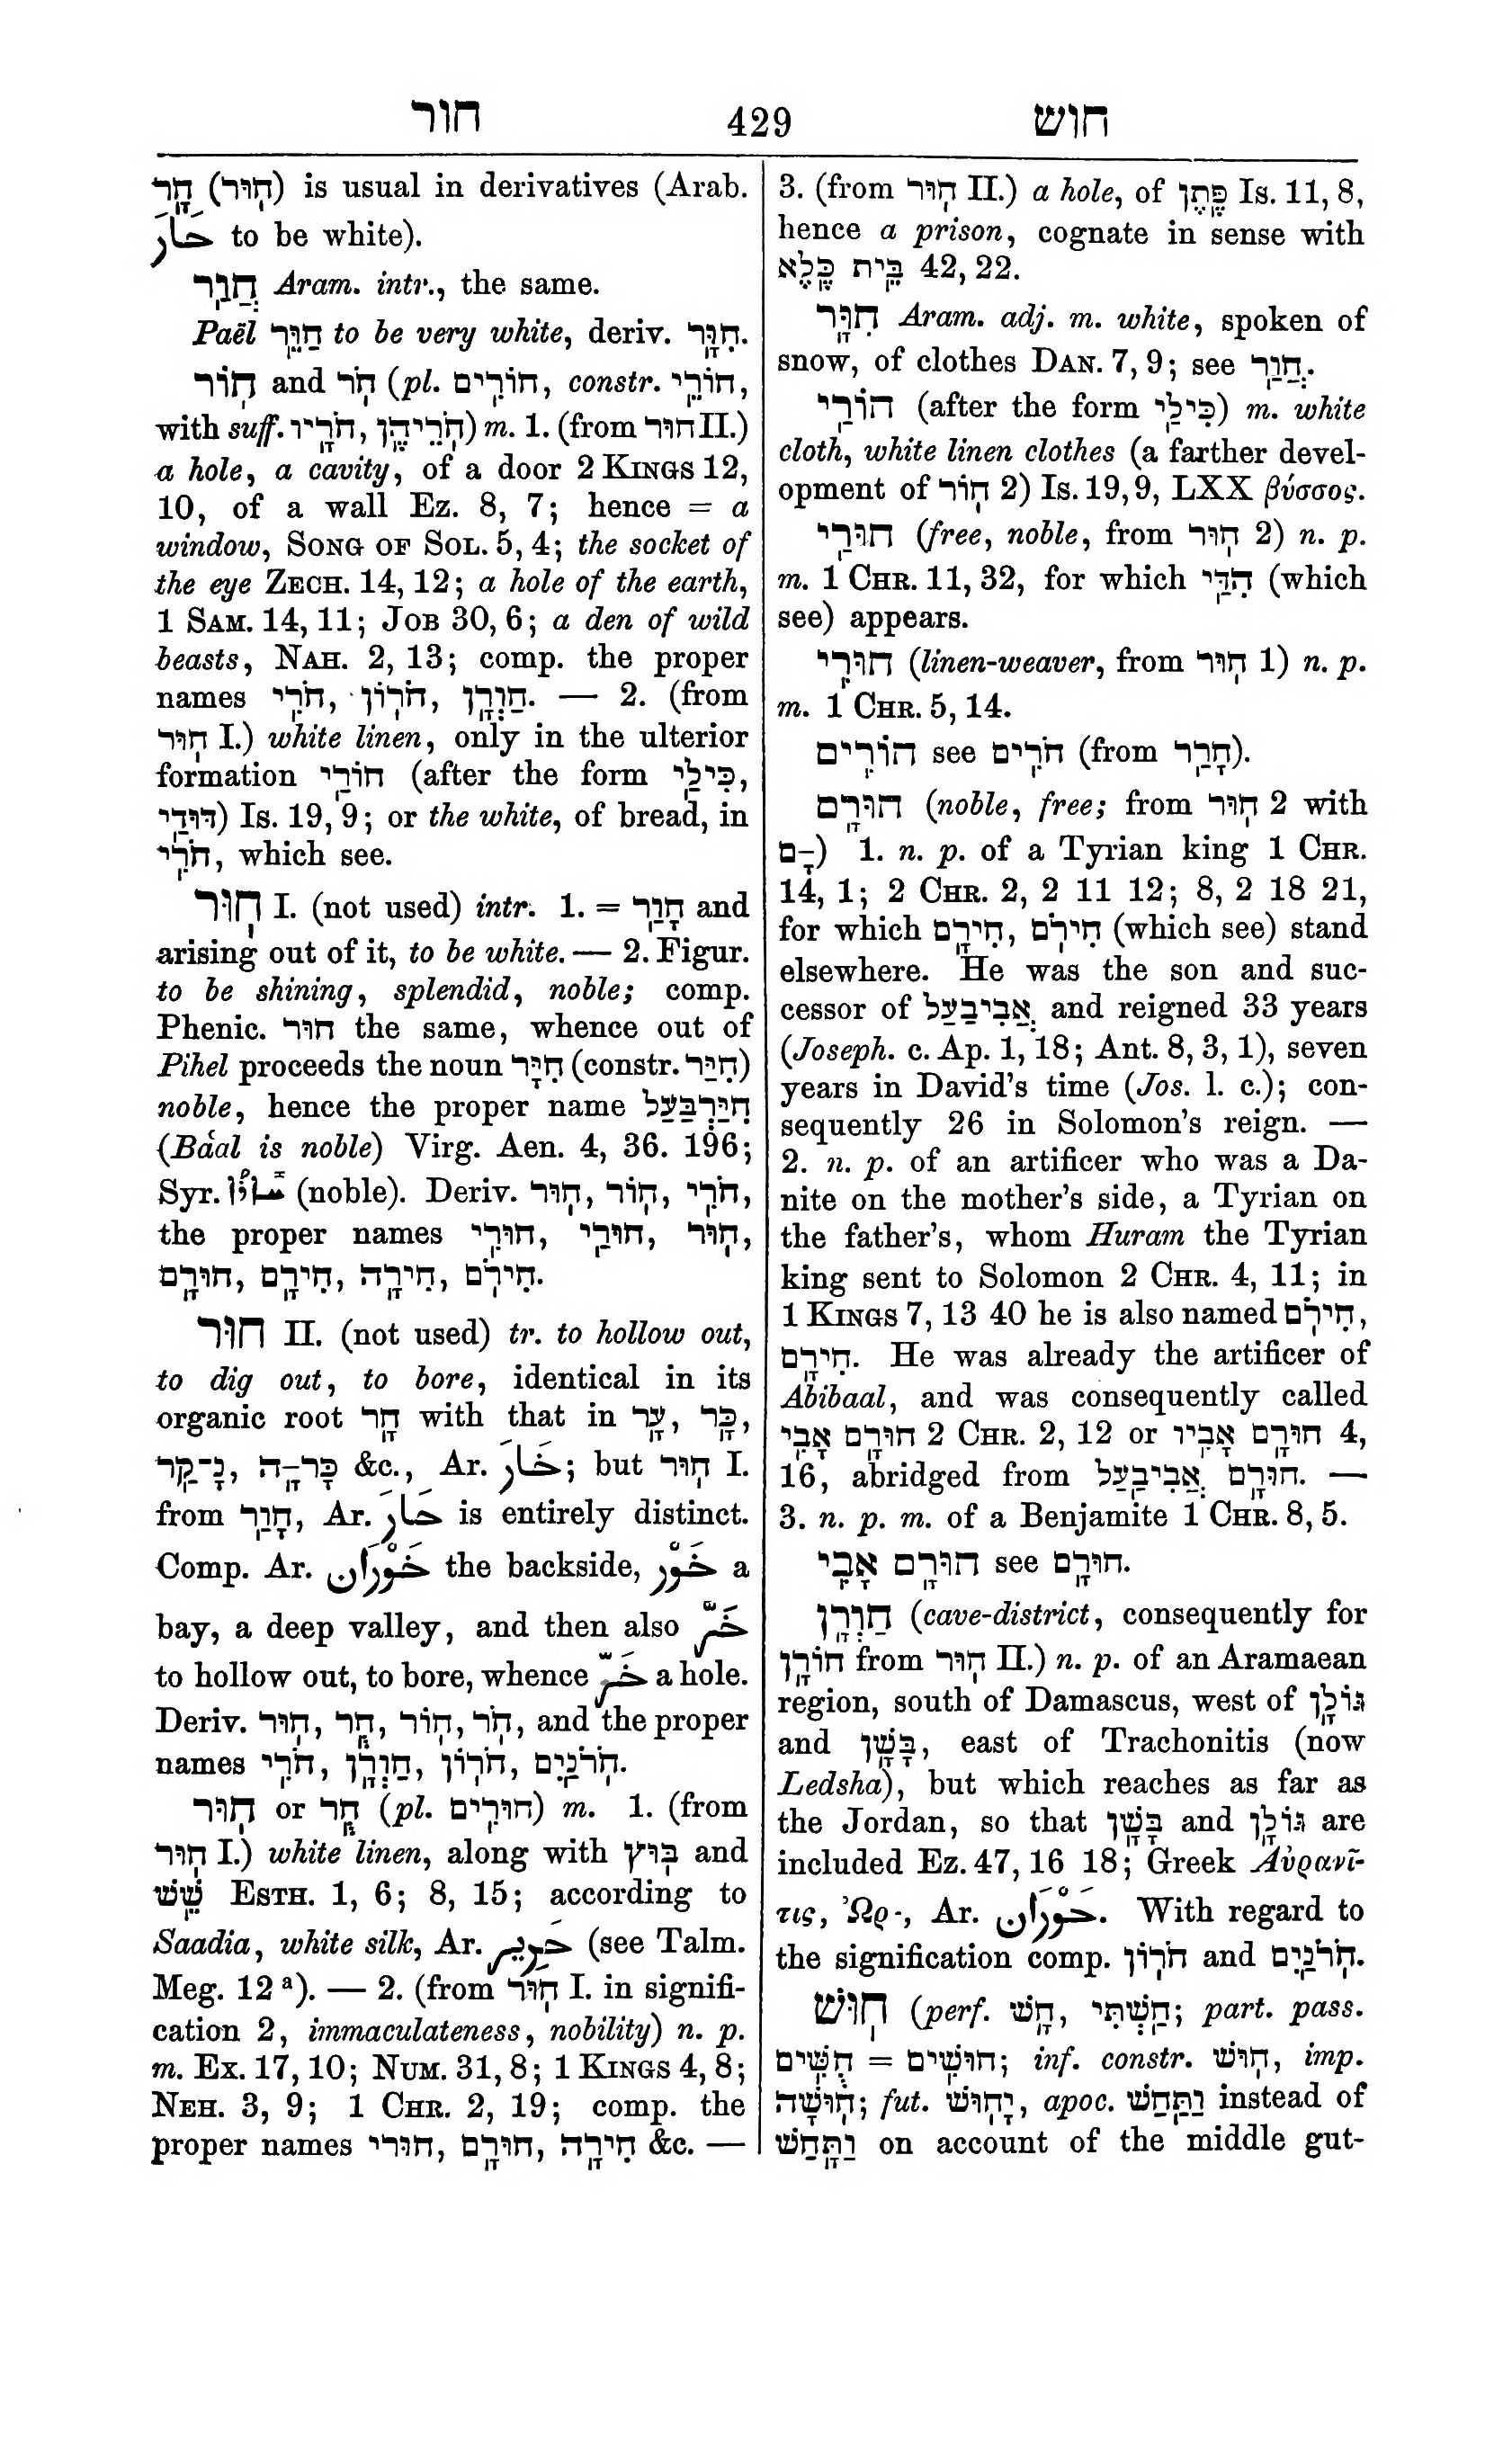 חור 429 חוש
חָר (חוּר) is usual in derivatives (Arab.
حَارَ to be white).
חֲוַר Aram. intr., the same.
Paël חַוֵּר to be very white, deriv. חִוָּר.
חוֹר and חֹר (pl. חוֹרִים, constr. חוֹרֵי,
with suff. חֹרָיו, חֹרֵיהֶן) m. 1. (from חוּר II.)
a hole, a cavity, of a door 2 KINGS 12,
10, of a wall Ez. 8, 7; hence = a
window, SONG OF SOL. 5, 4; the socket of
the eye ZECH. 14, 12; a hole of the earth,
1 SAM. 14, 11; JOB 30, 6; a den of wild
beasts, NAH. 2, 13; comp. the proper
names חֹרִי, חֹרוֹן, חַוְרָן. — 2. (from
חוּר I.) white linen, only in the ulterior
formation חוֹרַי (after the form כִּילַי,
דּוּדַי) Is. 19, 9; or the white, of bread, in
חֹרִי, which see.
חוּר I. (not used) intr. 1. = חָוַר and
arising out of it, to be white. — 2. Figur.
to be shining, splendid, noble; comp.
Phenic. חוּר the same, whence out of
Pihel proceeds the noun חִיָּר (constr. חִיַּר)
noble, hence the proper name חִיַּרְבַּעַל
(Báal is noble) Virg. Aen. 4, 36. 196;
Syr. (noble). Deriv. חוּר, חוֹר, חֹרִי,
the proper names חוּרִי, חוּרַי, חוּר,
חוּרָם, חִירָם, חִירָה, חִירֹם.
חוּר II. (not used) tr. to hollow out,
to dig out, to bore, identical in its
organic root חָר with that in עָר, כָּר,
נָ־קַר, כָּרָ־ה &c., Ar. خَارَ; but חוּר I.
from חָוַר, Ar. حَارَ is entirely distinct.
Comp. Ar. خَوْرَان the backside, خَوْر a
bay, a deep valley, and then also خَرَّ
to hollow out, to bore, whence خَرّ a hole.
Deriv. חוּר, חֻר, חוֹר, חֹר, and the proper
names חֹרִי, חַוְרָן, חֹרוֹן, חֹרֹנַיִם.
חוּר or חֻר (pl. חוּרִים) m. 1. (from
חוּר I.) white linen, along with בּוּץ and
שֵׁשׁ ESTH. 1, 6; 8, 15; according to
Saadia, white silk, Ar. حَرِير (see Talm.
Meg. 12 a). — 2. (from חוּר I. in signifi-
cation 2, immaculateness, nobility) n. p.
m. Ex. 17, 10; NUM. 31, 8; 1 KINGS 4, 8;
NEH. 3, 9; 1 CHR. 2, 19; comp. the
proper names חוּרי, חוּרָם, חִירָה &c. —
3. (from חוּר II.) a hole, of פֶּתֶן Is. 11, 8,
hence a prison, cognate in sense with
בֵּית כֶּלֶא 42, 22.
חִוָּר Aram. adj. m. white, spoken of
snow, of clothes DAN. 7, 9; see חֲוַר.
חוֹרַי (after the form כִּילַי) m. white
cloth, white linen clothes (a farther devel-
opment of חוֹר 2) Is. 19, 9, LXX βύσσος.
חוּרַי (free, noble, from חוּר 2) n. p.
m. 1 CHR. 11, 32, for which הִדַּי (which
see) appears.
חוּרִי (linen-weaver, from חוּר 1) n. p.
m. 1 CHR. 5, 14.
חוֹרִים see חֹרִים (from חָרַר).
חוּרָם (noble, free; from חוּר 2 with
־ָם) 1. n. p. of a Tyrian king 1 CHR.
14, 1; 2 CHR. 2, 2 11 12; 8, 2 18 21,
for which חִירָם, חִירֹם (which see) stand
elsewhere. He was the son and suc-
cessor of אֲבִיבַעַל and reigned 33 years
(Joseph. c. Ap. 1, 18; Ant. 8, 3, 1), seven
years in David's time (Jos. l. c.); con-
sequently 26 in Solomon's reign. —
2. n. p. of an artificer who was a Da-
nite on the mother's side, a Tyrian on
the father's, whom Huram the Tyrian
king sent to Solomon 2 CHR. 4, 11; in
1 KINGS 7, 13 40 he is also named חִירֹם,
חִירָם. He was already the artificer of
Abibaal, and was consequently called
חוּרָם אָבִי 2 CHR. 2, 12 or חוּרָם אָבִיו 4,
16, abridged from חוּרָם אֲבִיבַעַל. —
3. n. p. m. of a Benjamite 1 CHR. 8, 5.
חוּרָם אָבִי see חוּרָם.
חַוְרָן (cave-district, consequently for
חוֹרָן from חוּר II.) n. p. of an Aramaean
region, south of Damascus, west of גּוֹלָן
and בָּשָׁן, east of Trachonitis (now
Ledsha), but which reaches as far as
the Jordan, so that בָּשָׁן and גּוֹלָן are
included Ez. 47, 16 18; Greek Αὐρανῖ-
τις, Ὠρ-, Ar. حَوْرَان. With regard to
the signification comp. חֹרוֹן and חֹרֹנַיִם.
חוּשׁ (perf. חָשׁ, חַשְׁתִּי; part. pass.
חֻשִׁים = חוּשִׁים; inf. constr. חוּשׁ, imp.
חוּשָׁה; fut. יָחוּשׁ, apoc. וַתַּחַשׁ instead of
וַתָּחַשׁ on account of the middle gut-